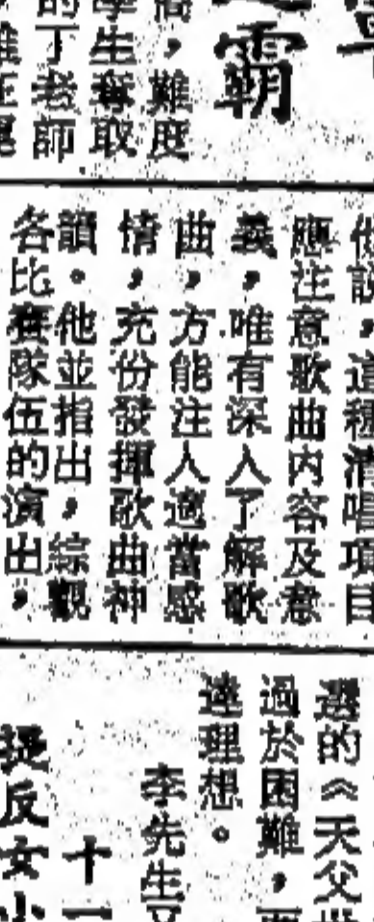 霸
高，難度
學生奪取
的丁老師
他說，這種清唱項目
應注意歌曲內容及意
義，唯有深入了解歌
曲，方能注入適當感
情，充份發揮歌曲神
韻。他並指出，綜觀
各比賽隊伍的演出，
選的《天父
過於困難，
達理想。
李先生又
十一
提反女小